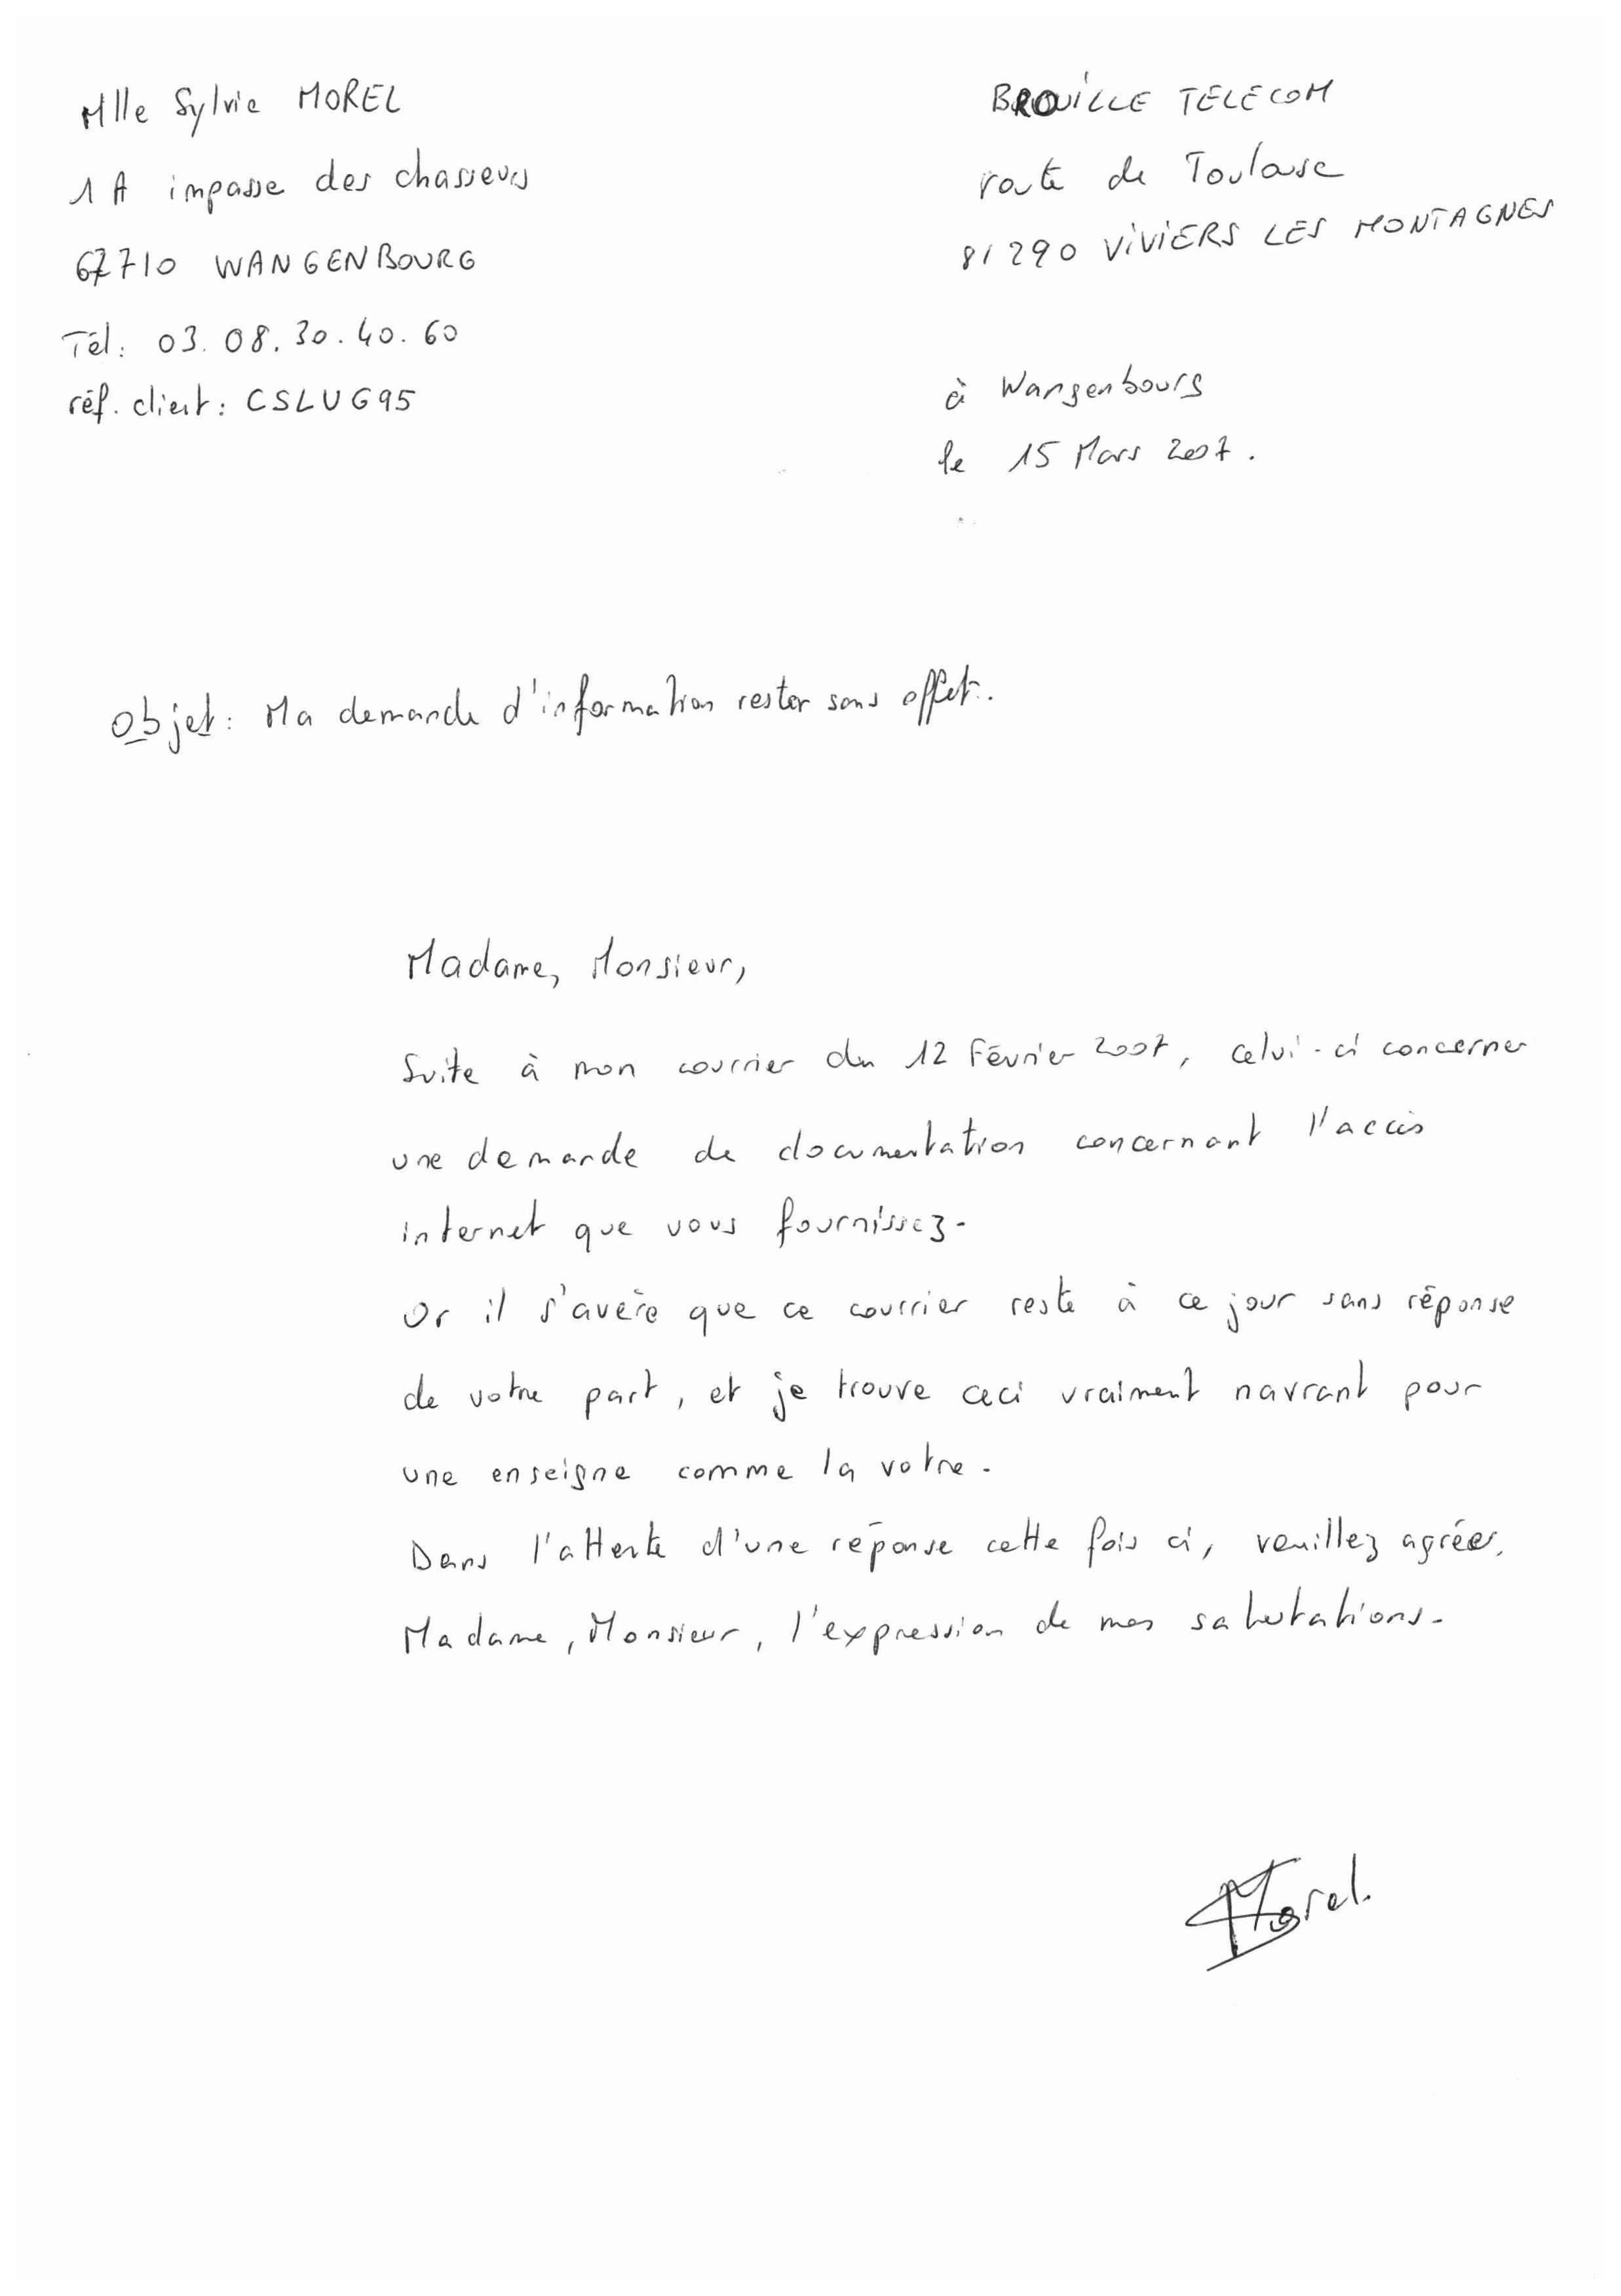 Mlle Sylvie MOREL
1A impasse des chasseurs
67710 WANGENBOURG
Tél: 03.08.30.40.60
réf. client: CSLUG95
BROUILLE TELECOM
route de Toulouse
81290 VIVIERS LES MONTAGNES
à Wangenbourg
le 15 Mars 2007.
Objet: Ma demande d'information rester sans effet.
Madame, Monsieur,
Suite à mon courrier du 12 Février 2007, celui-ci concerner
une demande de documentation concernant l'accès
internet que vous fournissez.
Or il s'avère que ce courrier reste à ce jour sans réponse
de votre part, et je trouve ceci vraiment navrant pour
une enseigne comme la votre.
Dans l'attente d'une réponse cette fois ci, veuillez agréer,
Madame, Monsieur, l'expression de mes salutations.
Morel.